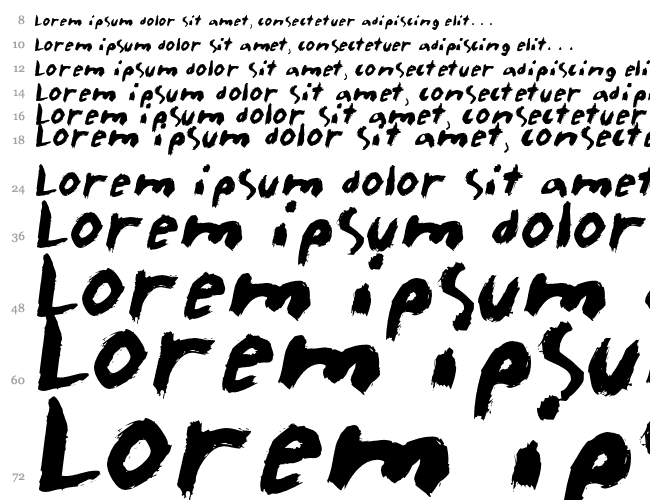 8 Lorem ipsum dolor sit amet, consectetuer adipiscing elit...
10 Lorem ipsum dolor sit amet, consectetuer adipiscing elit...
12 Lorem ipsum dolor sit amet, consectetuer adipiscing eli
14 Lorem ipsum dolor sit amet, consectetuer adip
16 Lorem ipsum dolor sit amet, consectetuer
18 Lorem ipsum dolor sit amet, consecte
24 Lorem ipsum dolor sit amet
36 Lorem ipsum dolor
48 Lorem ipsum
60 Lorem ipsu
72 Lorem ip